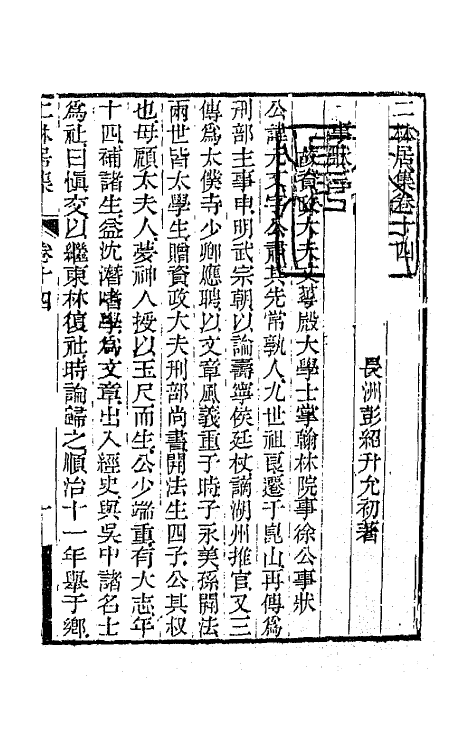 二林居集卷十四
長洲彭紹升允初著
事狀二
故資政大夫文華殿大學士掌翰林院事徐公事狀
公諱元文字公肅其先常孰人九世祖良遷于崑山再傳爲
刑部主事申明武宗朝以論壽寧侯廷杖謫湖州推官又三
傳爲太僕寺少卿應聘以文章風義重于時子永美孫開法
兩世皆太學生贈資政大夫刑部尚書開法生四子公其叔
也毋顧太夫人夢神人授以玉尺而生公少端重有大志年
十四補諸生益沈潛嗜學爲文章出入經史與吳中諸名士
爲社曰愼交以繼東林復社時論歸之順治十一年舉于鄉
二林居集
卷十四
一